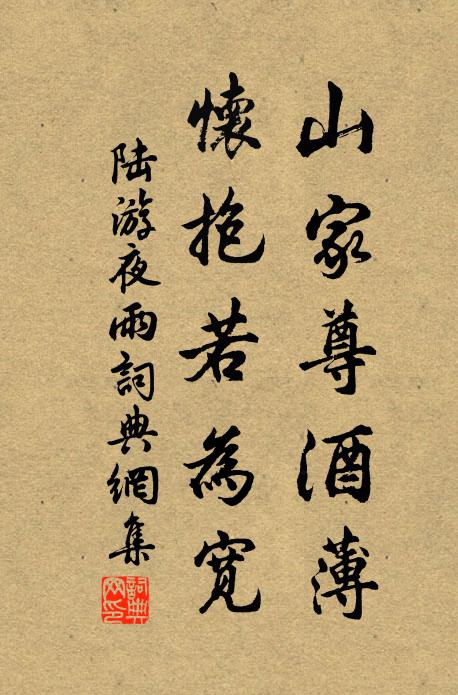 山家尊酒薄
懷抱若為寬
陸游夜雨詞典網集
詞典网印